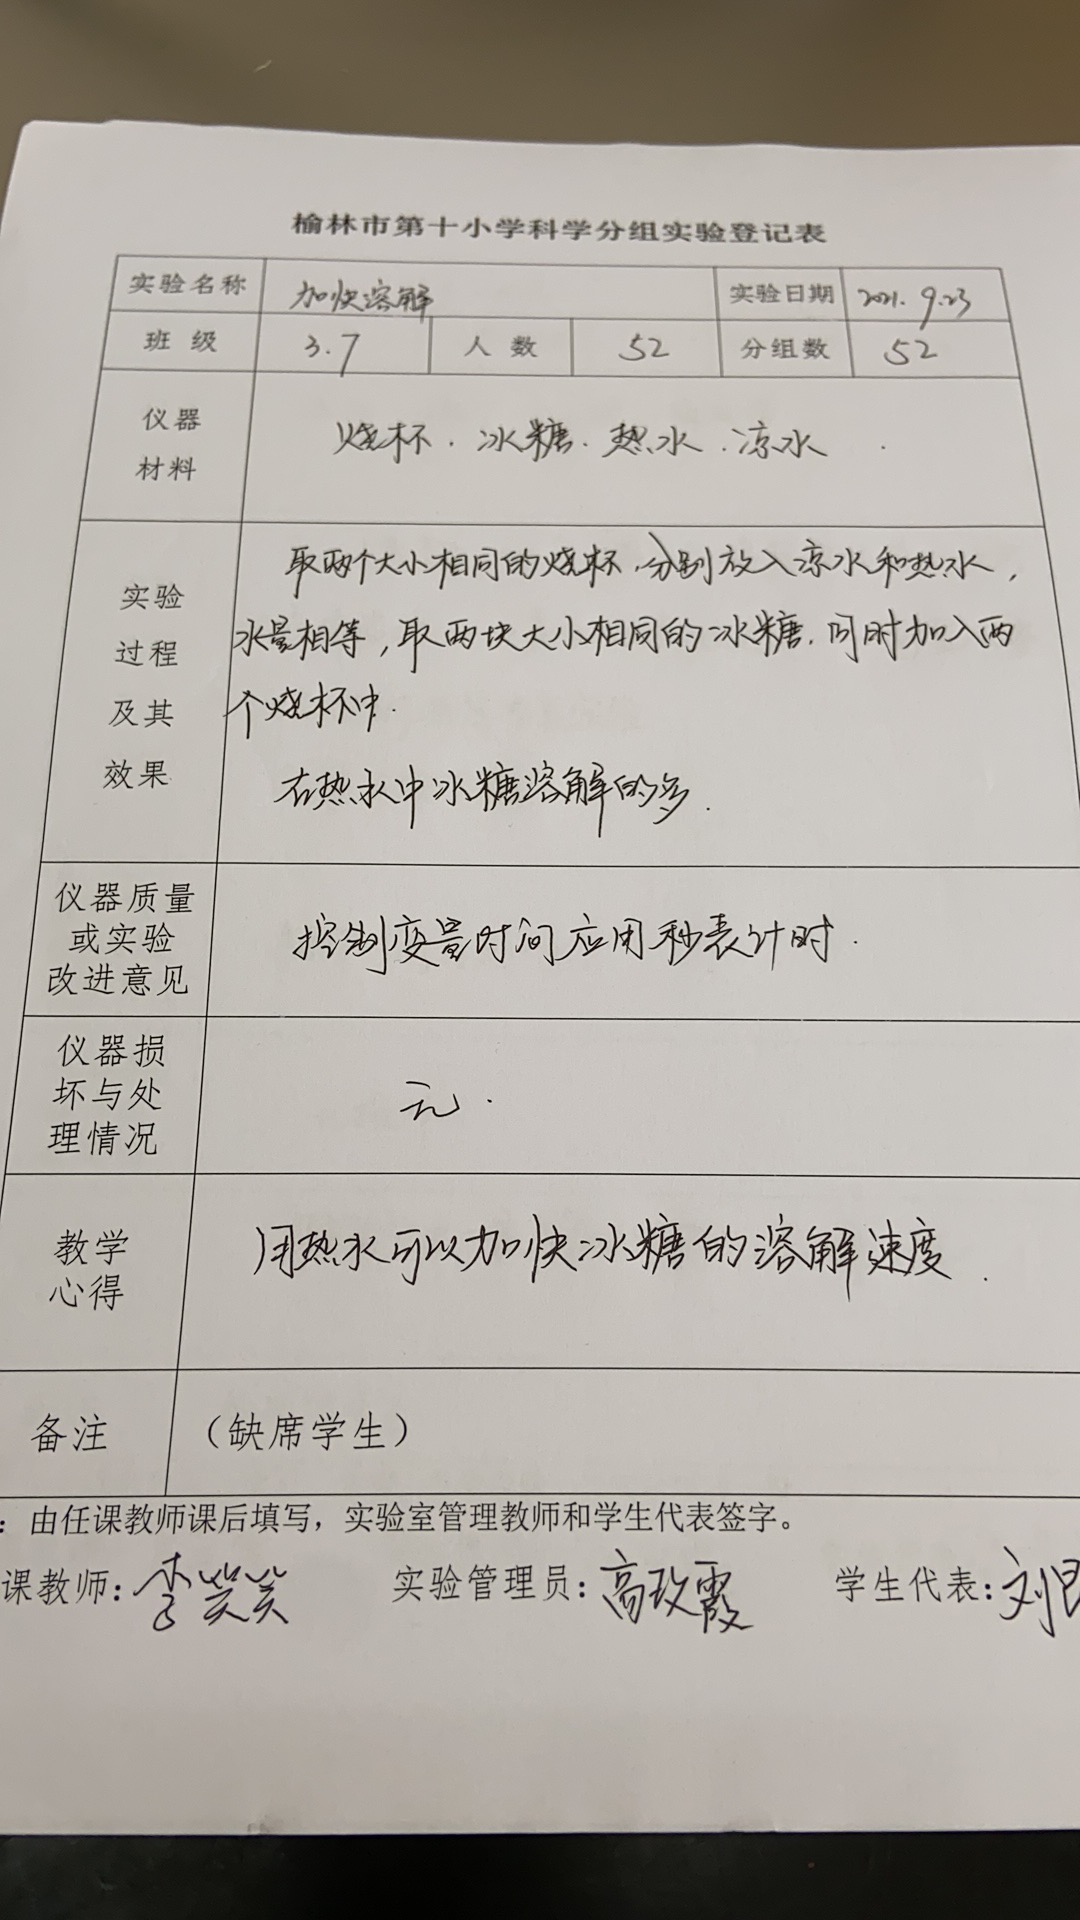 榆林市第十小学科学分组实验登记表
实验名称 加快溶解 实验日期 2021.9.23
班级 3.7 人数 52 分组数 52
仪器
材料
烧杯.冰糖.热水.凉水.
实验
过程
及其
效果
取两个大小相同的烧杯.分别放入凉水和热水,
水量相等,取两块大小相同的冰糖.同时加入两
个烧杯中.
在热水中冰糖溶解的多.
仪器质量
或实验
改进意见
控制变量时间应用秒表计时.
仪器损
坏与处
理情况
无.
教学
心得
用热水可以加快冰糖的溶解速度.
备注 (缺席学生)
:由任课教师课后填写,实验室管理教师和学生代表签字。
课教师:李笑笑 实验管理员:高玫霞 学生代表:刘